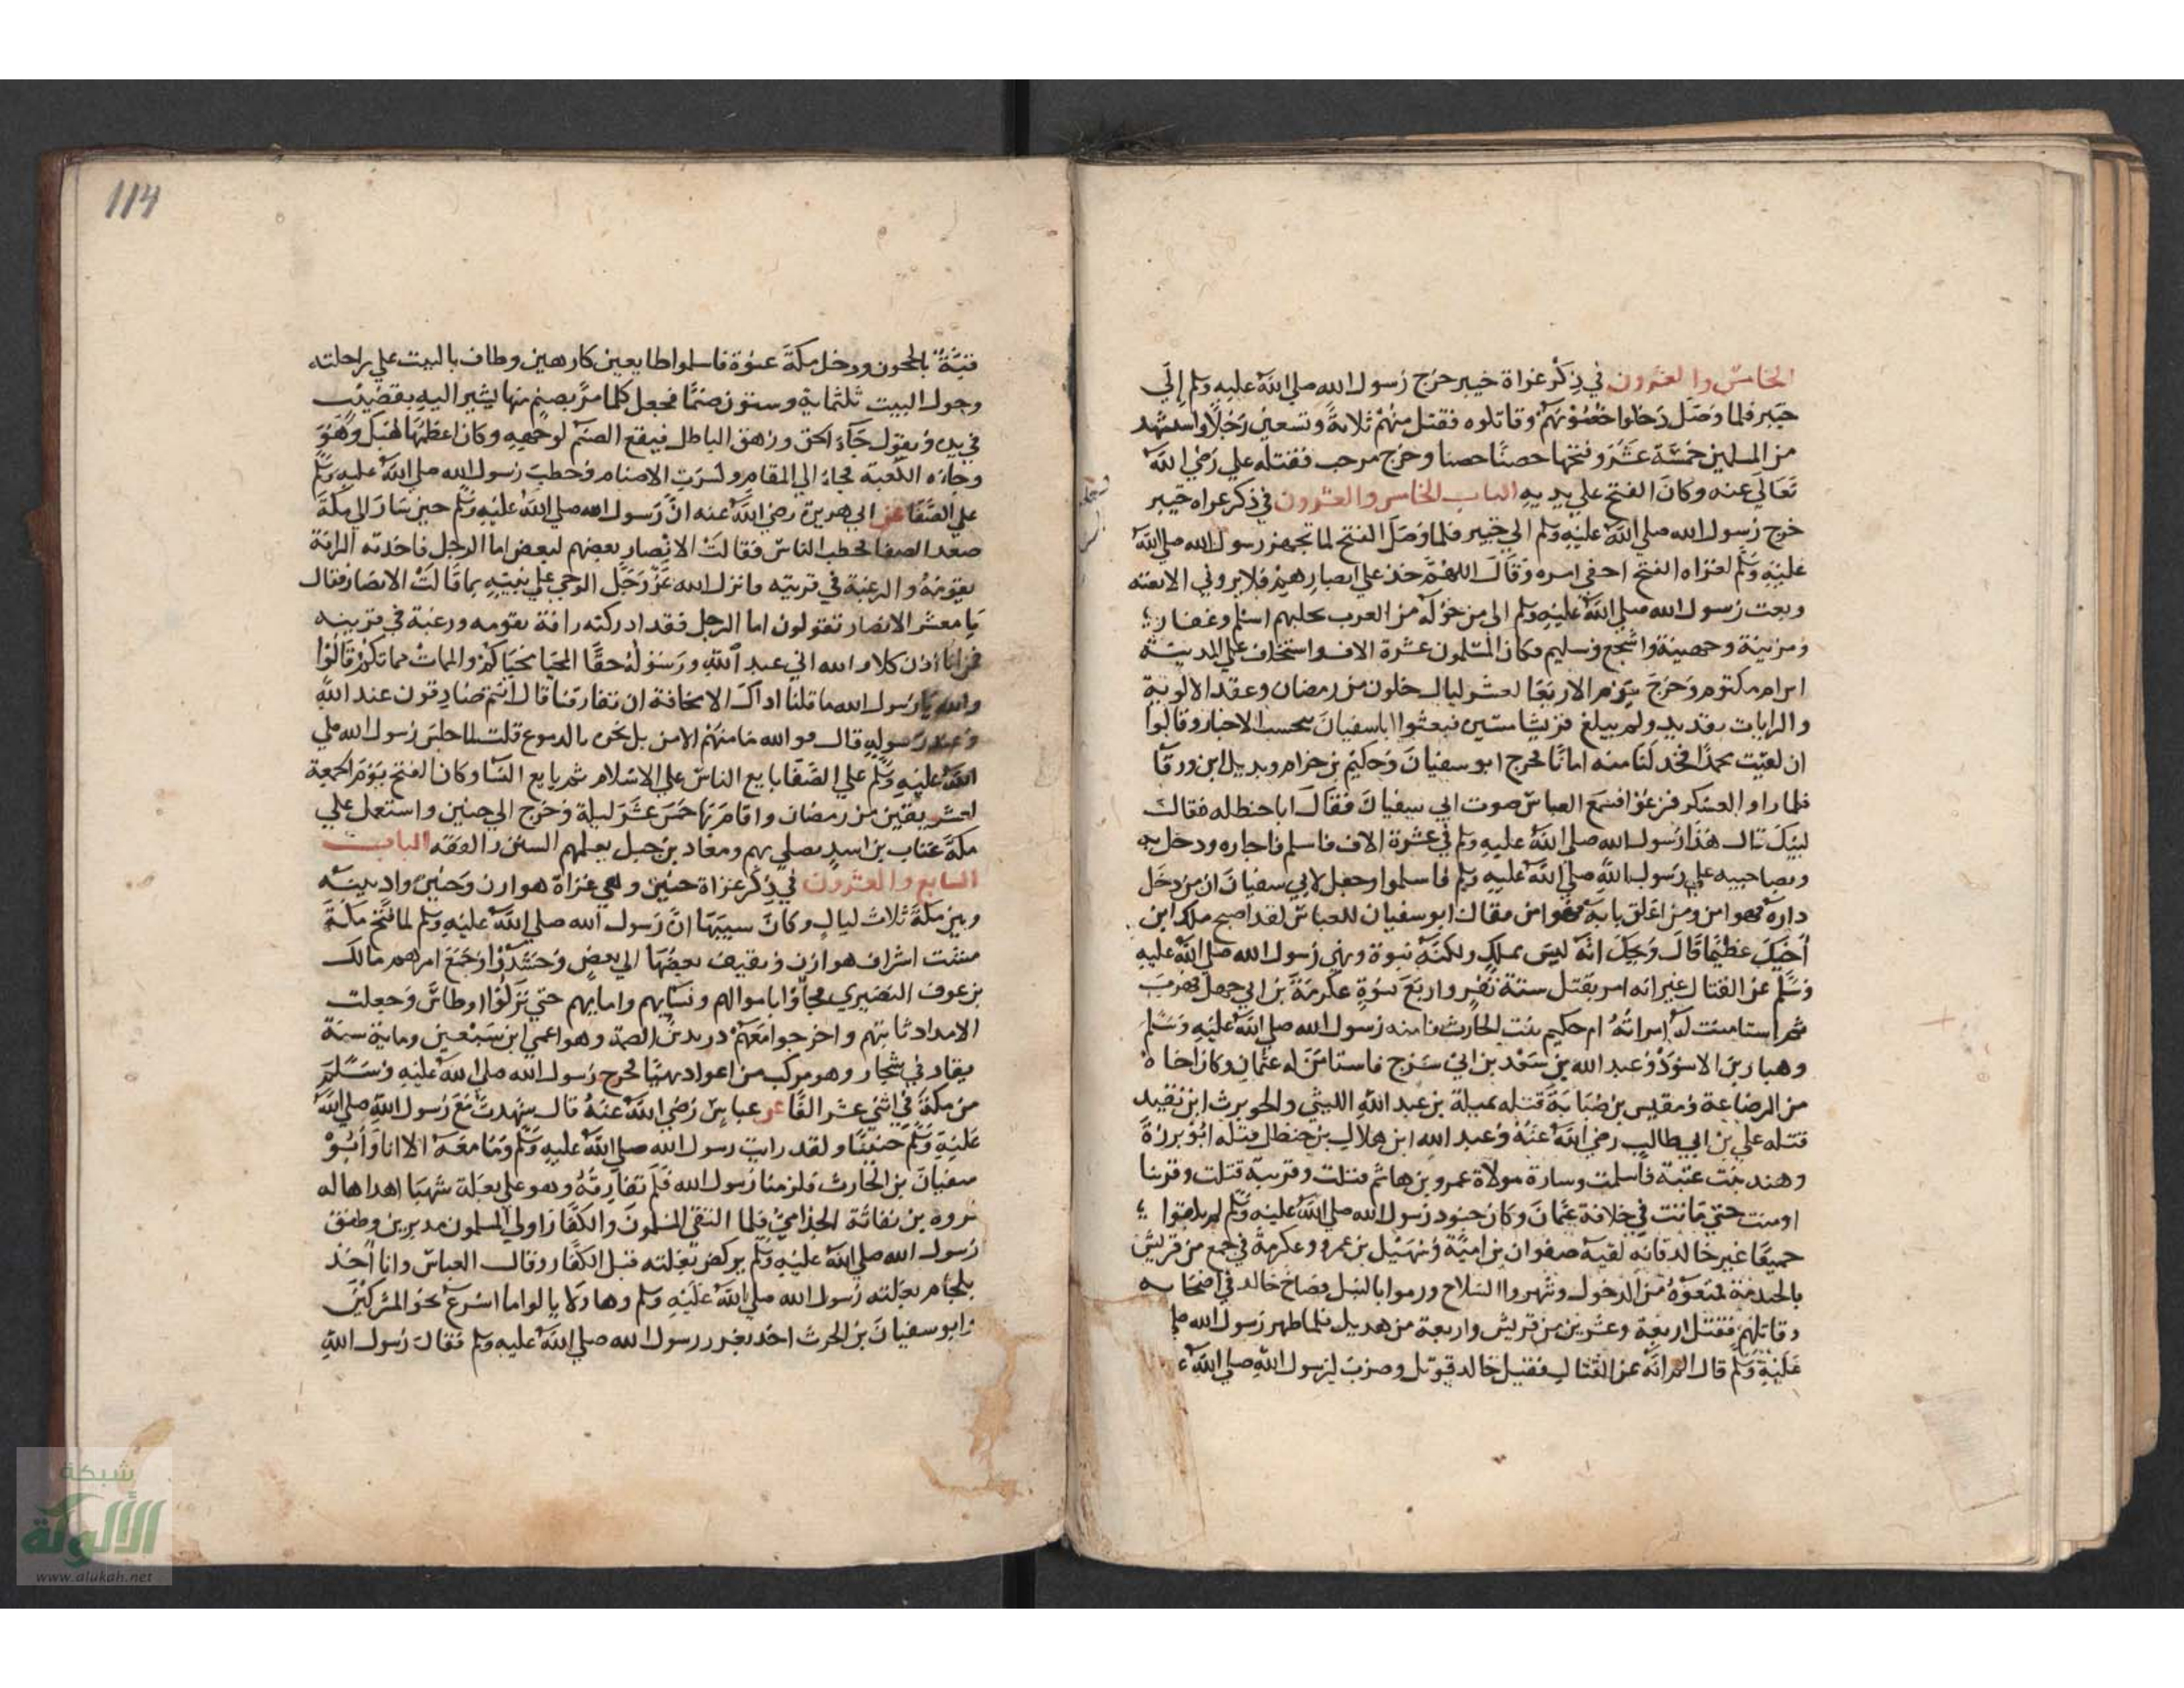 الخامس والعشرون في ذكر غزاة خيبر خرج رسول الله صلي الله عليه وسلم إلي
خيبر فلما وصل دخلوا حصونهم وقاتلوه فقتل منهم ثلاثة وتسعين رجلا واستشهد
من المسلمين خمسة عشر وفتحها حصنا حصنا وخرج مرحب فقتله علي رضي الله
تعالي عنه وكان الفتح علي يديه الباب الخامس والعشرون في ذكر غزاه خيبر
خرج رسول الله صلي الله عليه وسلم الي خيبر فلما وصل الفتح لما تجهز رسول الله صلي الله
عليه وسلم لغزاه الفتح اخفي امره وقال اللهم خذ علي ابصارهم فلا يروني الا بغته
وبعث رسول الله صلي الله عليه وسلم الي من حوله من العرب بجلبهم اسلم وغفار
ومزينة وجهينة واشجع وسليم فكان المسلمون عشرة الاف واستخلف علي المدينة
ابن ام مكتوم وخرج يوم الاربعا لعشر ليال خلون من رمضان وعقد الالوية
والرايات بقديد ولم يبلغ قريشا مسيره فبعثوا ابا سفيان يتحسب الاخبار وقالوا
ان لقيت محمدا فخذ لنا منه امانا فخرج ابو سفيان وحكيم بن حزام وبديل ابن ورقا
فلما راو العسكر فزعوا فسمع العباس صوت ابي سفيان فقال ابا حنظله فقال
لبيك قال هذا رسول الله صلي الله عليه وسلم في عشرة الاف فاسلم فاجاره ودخل به
وبصاحبيه علي رسول الله صلي الله عليه وسلم فاسلموا وجعل لابي سفيان ان من دخل
داره فهو امن ومن اغلق بابه فهو امن فقال ابو سفيان للعباس لقد اصبح ملك ابن
أخيك عظيما قال ويحك انه ليس بملك ولكنه نبوة ونهي رسول الله صلي الله عليه
وسلم عن القتال غير انه امر بقتل ستة نفر واربع نسوة عكرمة بن ابي جهل فهرب
ثم استامنت له امراته ام حكيم بنت الحارث فامنه رسول الله صلي الله عليه وسلم
وهبار بن الاسود وعبد الله بن سعد بن ابي سرح فاستامن له عثمان وكان اخاه
من الرضاعة ومقيس بن ضبابة قتله نميلة بن عبد الله الليثي والحويرث ابن نقيد
قتله علي بن ابي طالب رضي الله عنه وعبد الله ابن هلال بن خطل قتله ابو برزة
وهند بنت عتبة فاسلمت وسارة مولاة عمرو بن هاشم قتلت وقريبة قتلت وفرتنا
اومنت حتي ماتت في خلافة عثمان وكان جنود رسول الله صلي الله عليه وسلم لم يلقوا
جميعا غير خالد فانه لقيه صفوان بن امية وسهيل بن عمرو وعكرمة في جمع من قريش
بالخندمة فمنعوه من الدخول وشهروا السلاح ورموا بالنبل فصاح خالد في اصحابه
وقاتلهم فقتل اربعة وعشرين من قريش واربعة من هديل فلما ظهر رسول الله صلي
عليه وسلم قال الم انه عن القتال فقيل خالد قوتل وضرب لرسول الله صلي الله
114
قبة بالحجون ودخل مكة عنوة فاسلموا طايعين كارهين وطاف بالبيت علي راحلته
وحول البيت ثلثماية وستون صنما فجعل كلما مر بصنم منها يشير اليه بقضيب
في يده ويقول جاء الحق وزهق الباطل فيقع الصنم لوجهه وكان اعظمها هبل وهو
وجاه الكعبة فجاء الي المقام وكسرت الاصنام فخطب رسول الله صلي الله عليه وسلم
علي الصفا عن ابي هريرة رضي الله عنه ان رسول الله صلي الله عليه وسلم حين سار الي مكة
صعد الصفا لخطب الناس فقالت الانصار بعضهم لبعض اما الرجل فاخذته الرافة
بقومه والرغبة في قريته وانزل الله عز وجل الوحي علي نبيه بما قالت الانصار فقال
يا معشر الانصار تقولون اما الرجل فقد ادركته رافة بقومه ورغبة في قريته
فمن انا اذن كلا والله اني عبد الله ورسوله حقا المحيا محياكم والممات مماتكم قالوا
والله يا رسول الله ما قلنا ذاك الا مخافة ان تفارقنا قال انتم صادقون عند الله
وعند رسوله قال فو الله ما منهم الا من بل نحره بالدموع قلت لما جلس رسول الله صلي
الله عليه وسلم علي الصفا بايع الناس علي الاسلام ثم بايع النسا وكان الفتح يوم الجمعة
لعشر بقين من رمضان واقام بها خمس عشر ليلة وخرج الي حنين واستعمل علي
مكة عتاب بن اسيد يصلي بهم ومعاد بن جبل يعلمهم السنن والفقه الباب
السابع والعشرون في ذكر غزاة حنين وهي غزاة هوازن وحنين واد بينه
وبين مكة ثلاث ليال وكان سببها ان رسول الله صلي الله عليه وسلم لما فتح مكة
مشت اشراف هوازن وثقيف بعضها الي بعض وحشدوا وجمع امرهم مالك
بن عوف النضيري فجاؤا باموالهم ونسايهم وابنايهم حتي نزلوا اوطاس وجعلت
الامداد تاتيهم واخرجوا معهم دريد بن الصمة وهو اعمي ابن سبعين وماية سنة
يقاد في شجار وهو مركب من اعواد يهيا فخرج رسول الله صلي الله عليه وسلم
من مكة في اثني عشر الفا عن عباس رضي الله عنه قال شهدت مع رسول الله صلي الله
عليه وسلم حنينا ولقد رايت رسول الله صلي الله عليه وسلم وما معه الا انا وابو
سفيان بن الحارث فلزمنا رسول الله فلم نفارقه وهو علي بغلة شهبا اهداها له
فروه بن نفاثة الجذامي فلما التقي المسلمون والكفار اولي المسلمون مدبرين وطفق
رسول الله صلي الله عليه وسلم يركض بغلته قبل الكفار وقال العباس وانا أخذ
بلجام بغلته رسول الله صلي الله عليه وسلم وهاولا يالوا ما اسرع نحو المشركين
وابو سفيان بن الحرث اخذ بغرز رسول الله صلي الله عليه وسلم فقال رسول الله
شبكة
الألوكة
www.alukah.net